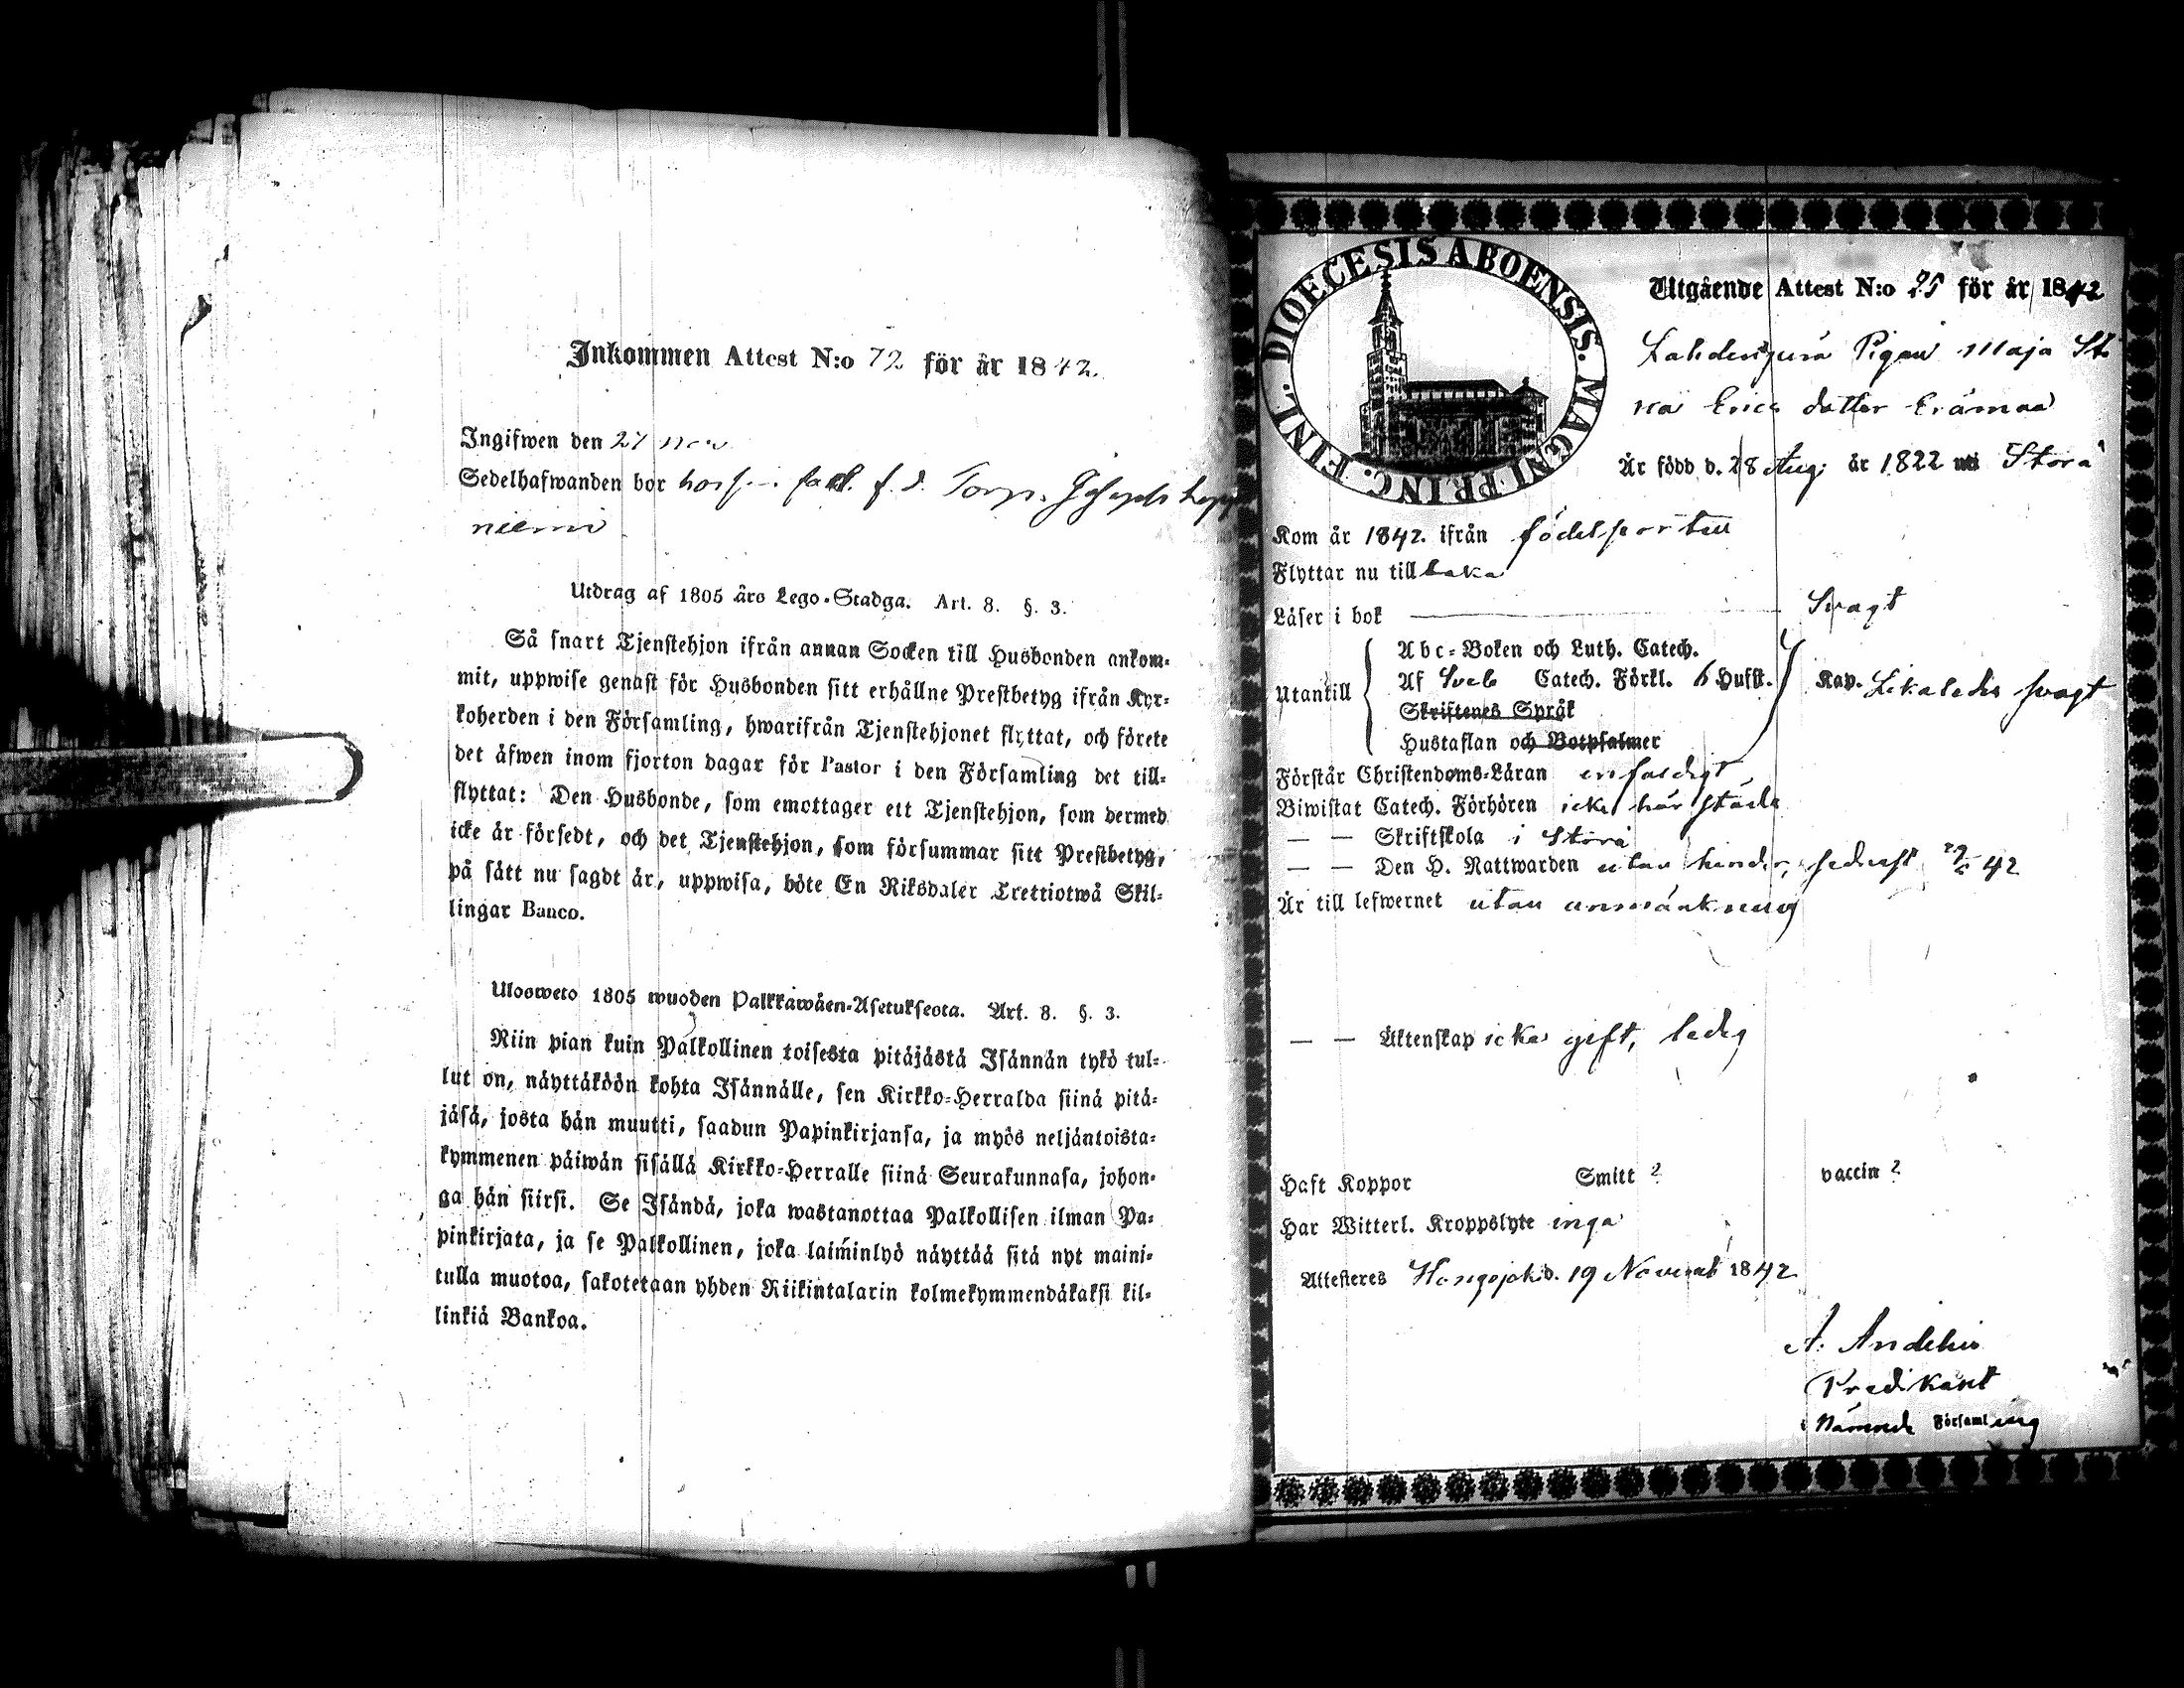 Inkommen Attest N:o 72 för år 1842.
Ingifwen den 27 nov
Sedelhafwanden bor hos f. d. Torp. Joseph
niemi
Utdrag af 1805 års Lego-Stadga. Art. 8. §. 3.
Så snart Tjenstehjon ifrån annan Socken till Husbonden ankom-
mit, uppwise genast för Husbonden sitt erhållne Prestbetyg ifrån Kyr-
koherden i den Församling, hwarifrån Tjenstehjonet flyttat, och förete
det äfwen inom fjorton dagar för Pastor i den Församling det till-
flyttat: Den Husbonde, som emottager ett Tjenstehjon, som dermed
icke är försedt, och det Tjenstehjon, som försummar sitt Prestbetyg,
på sätt nu sagdt är, uppwisa, böte En Riksdaler Trettiotwå Skil-
lingar Banco.
Ulosweto 1805 wuoden Palkkawäen-Asetuksesta. Art. 8. §. 3.
Niin pian kuin Palkollinen toisesta pitäjästä Isännän tykö tul-
lut on, näyttäköön kohta Isännälle, sen Kirkko-Herralda siinä pitä-
jäsä, josta hän muutti, saadun Papinkirjansa, ja myös neljäntoista-
kymmenen päiwän sisällä Kirkko-Herralle siinä Seurakunnasa, johon-
ga hän siirsi. Se Isändä, joka wastanottaa Palkollisen ilman Pa-
pinkirjata, ja se Palkollinen, joka laiminlyö näyttää sitä nyt maini-
tulla muotoa, sakotetaan yhden Riikintalarin kolmekymmendäkaksi kil-
linkiä Bankoa.
DIOECESIS ABOENSIS. MAGNI PRINC. FINL.
Utgående Attest N:o 25 för år 1842
Pigan Maja Sti
na Erics dotter Erämaa
Är född d. 28 Aug: år 1822 uti Storå
Kom år 1842. ifrån födelseorten
Flyttar nu tillbaka
Läser i bok Svagt
Utantill
Abc-Boken och Luth. Catech.
Af Sveb Catech. Förkl. 6 Hufst. Kap. Likaledes svagt
Skriftenes Språk
Hustaflan och Botpsalmer
Förstår Christendoms-Läran enfaldigt
Biwistat Catech. Förhören icke här städes
— — Skriftskola i Storå
— — Den H. Nattwarden utan hinder, sednast 42
Är till lefwernet utan anmärkning
— — Äktenskap icke gift, ledig
Haft Koppor Smitt ? vaccin ?
Har Witterl. Kroppslyte inga
Attesteras Hongojoki d. 19 Novemb 1842
A. Andelin
Predikant
i Nämnde Församling